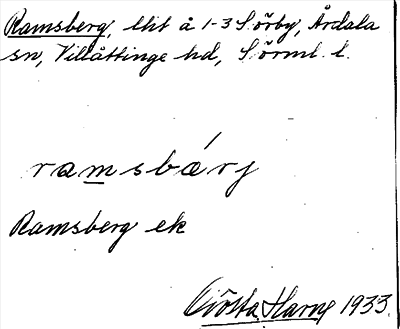 Ramsberg, lht å 1-3 Sörby, Årdala
sn, Villåttinge hd, Sörml. l.
ramsbærj
Ramsberg ek
Gösta Harne 1933.